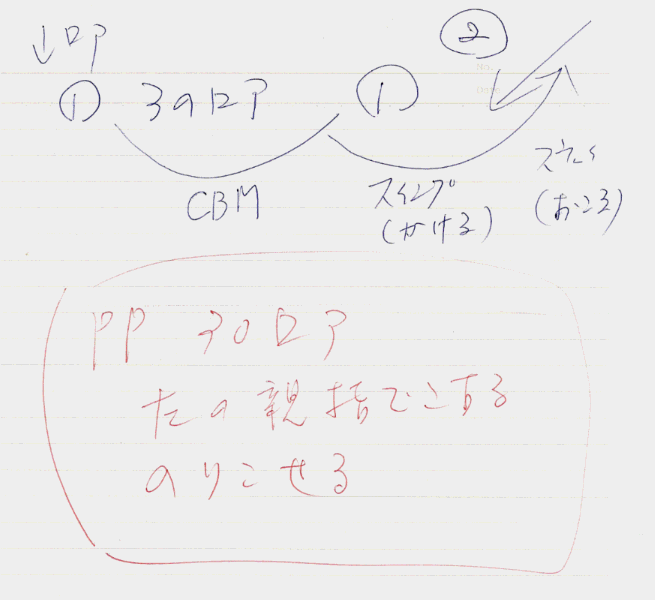 ↓ロア ②
① 3のロア ①
CBM スイング スウェイ
(かける) (おこる)
PP 3のロア
左の親指でこする
のりこせる